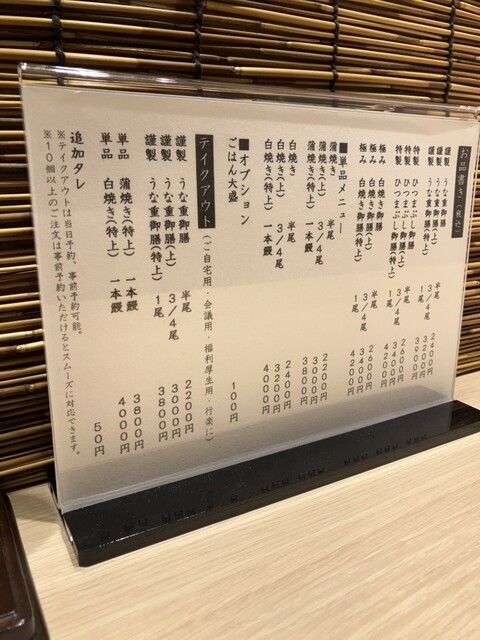 お品書き（税込）
謹製 うな重御膳 半尾 2400円
謹製 うな重御膳(上) 3/4尾 3200円
謹製 うな重御膳(特上) 1尾 3900円
特製 ひつまぶし御膳 半尾 2600円
特製 ひつまぶし御膳(上) 3/4尾 3400円
特製 ひつまぶし御膳(特上) 1尾 4200円
極み 白焼き御膳 半尾 2600円
極み 白焼き御膳(上) 3/4尾 3400円
極み 白焼き御膳(特上) 1尾 4200円
■単品メニュー
蒲焼き 半尾 2200円
蒲焼き(上) 3/4尾 3000円
蒲焼き(特上) 一本鰻 3800円
白焼き 半尾 2400円
白焼き(上) 3/4尾 3200円
白焼き(特上) 一本鰻 4000円
■オプション
ごはん大盛 100円
テイクアウト（ご自宅用・会議用・福利厚生用・行楽に）
謹製 うな重御膳 半尾 2200円
謹製 うな重御膳(上) 3/4尾 3000円
謹製 うな重御膳(特上) 1尾 3800円
単品 蒲焼き(特上) 一本鰻 3800円
単品 白焼き(特上) 一本鰻 4000円
追加タレ 50円
※テイクアウトは当日予約、事前予約可能。
※10個以上のご注文は事前予約いただけるとスムーズに対応できます。